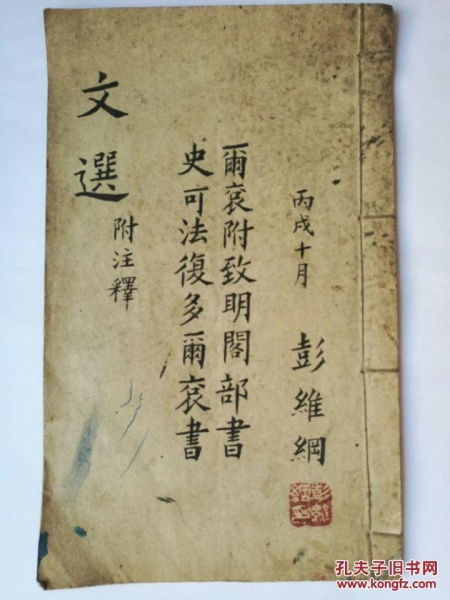 丙戌十月
彭維綱
爾袞附致明閣部書
史可法復多爾袞書
文選
附注釋
孔夫子旧书网
www.kongfz.com